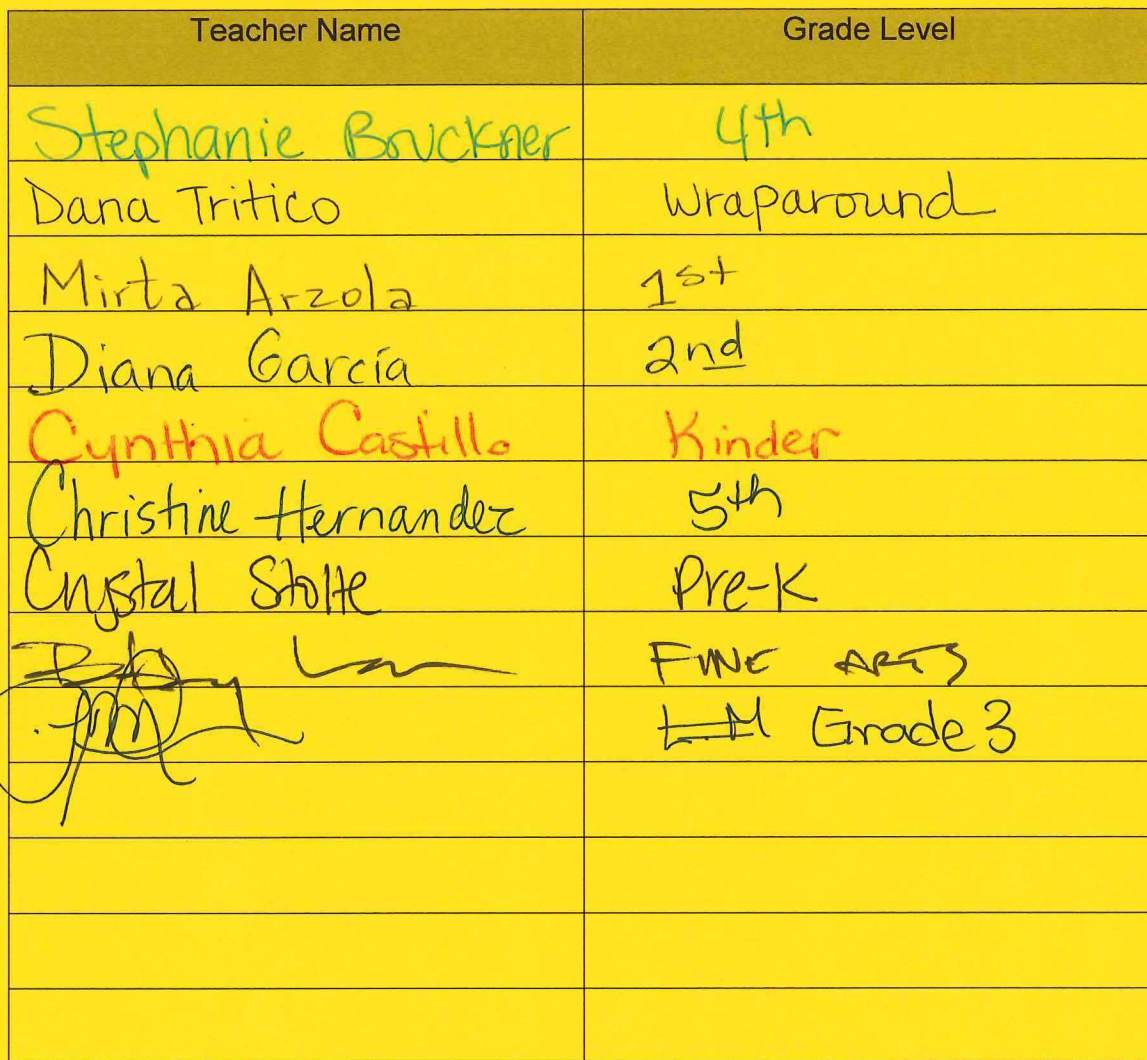 Teacher Name Grade Level
Stephanie Bruckner 4th
Dana Tritico Wraparound
Mirta Arzola 1st
Diana García 2nd
Cynthia Castillo Kinder
Christine Hernandez 5th
Crystal Stolte Pre-K
FINE ARTS
Grade 3